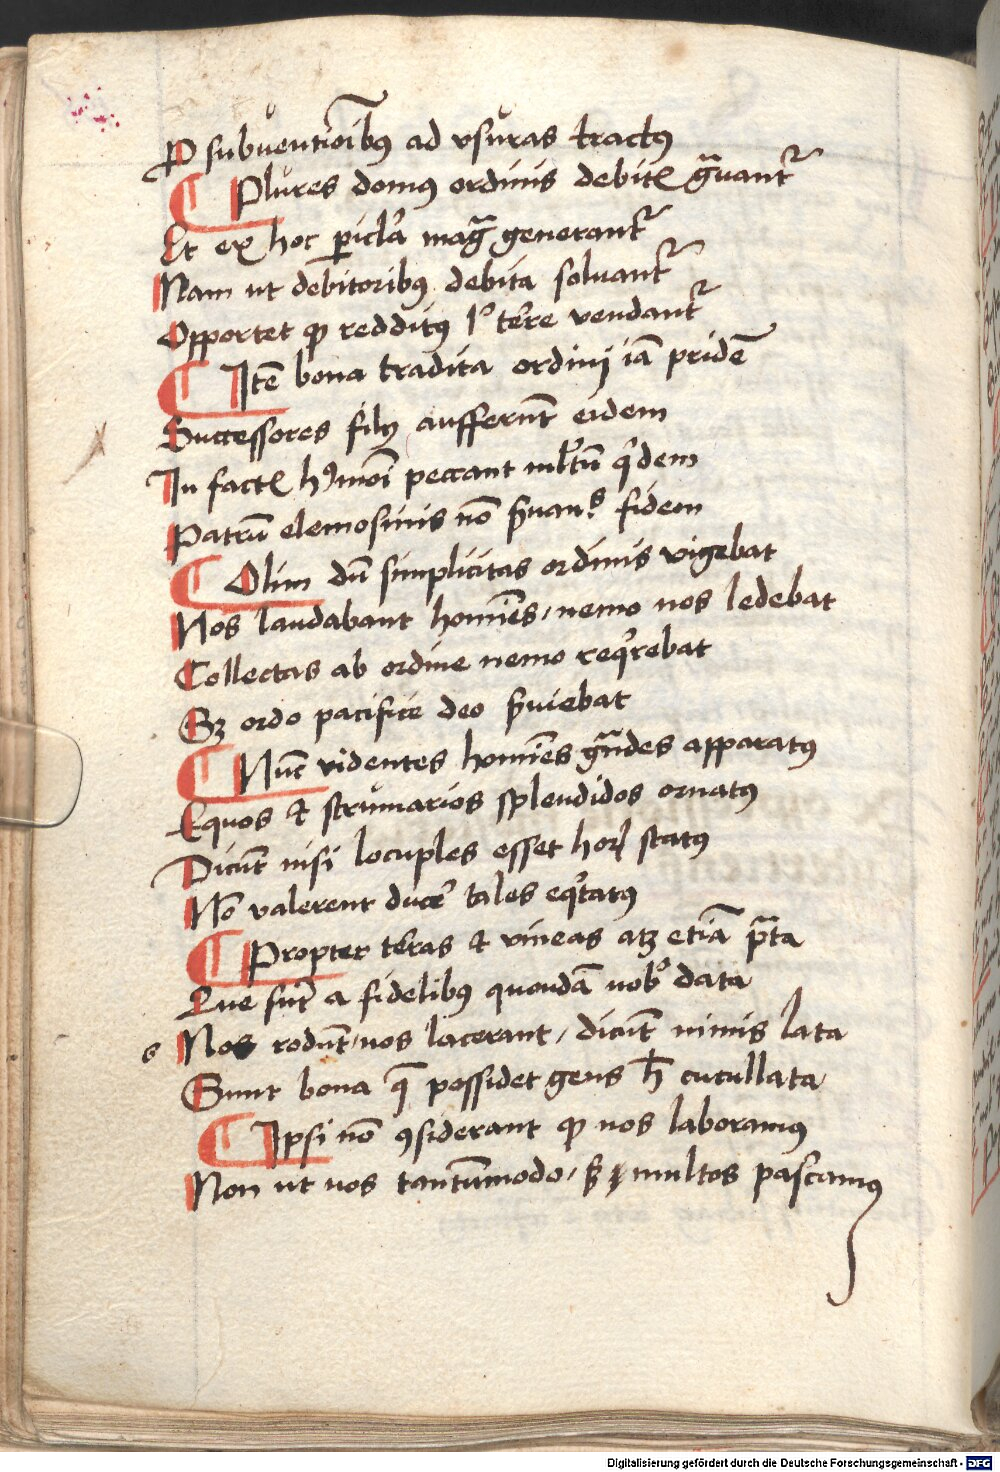 Pro subuentioībꝰ ad vsuras tractꝰ
¶ Plures domꝰ ordinis debitꝭ gͣuantᷣ
Et ex hoc ꝑicl̓a magͣ generantᷣ
Nam ut debitoribꝰ debita soluantᷣ
Opportet ꝙ redditꝰ lꝰ terre vendantᷣ
¶ Itē bona tradita ordinj iā pridē
Successores filij aufferūt eidem
In factꝭ hꝰmōi peccant ml̓tū qͥdem
Patrū elemosinis nō ẜuant fidem
¶ Olim dū simplicitas ordinis vigebat
Nos laudabant homīes / nemo nos ledebat
Collectas ab ordine nemo reqͥrebat
Sꝫ ordo pacifice deo ẜuiebat
¶ Nūc videntes homīes gͣndes apparatꝰ
Equos et strumarios splendidos ornatꝰ
Dicūt nisi locuples esset horꝝ statꝰ
Nō valerent ducer̓ tales eqͥtatꝰ
¶ Propter t̓ras et vineas atqꝫ etiā pͣta
Que sūt a fidelibꝰ quondā nobꝰ data
Nos rodūt / nos lacerant / dicūt nimis lata
Sunt bona q̄ possidet gens h̄ cucullata
¶ Ipsi nō ꝯsiderant ꝙ nos laboramꝰ
Non ut nos tantūmodo / ẜ multos pascamꝰ
Digitalisierung gefördert durch die Deutsche Forschungsgemeinschaft - DFG